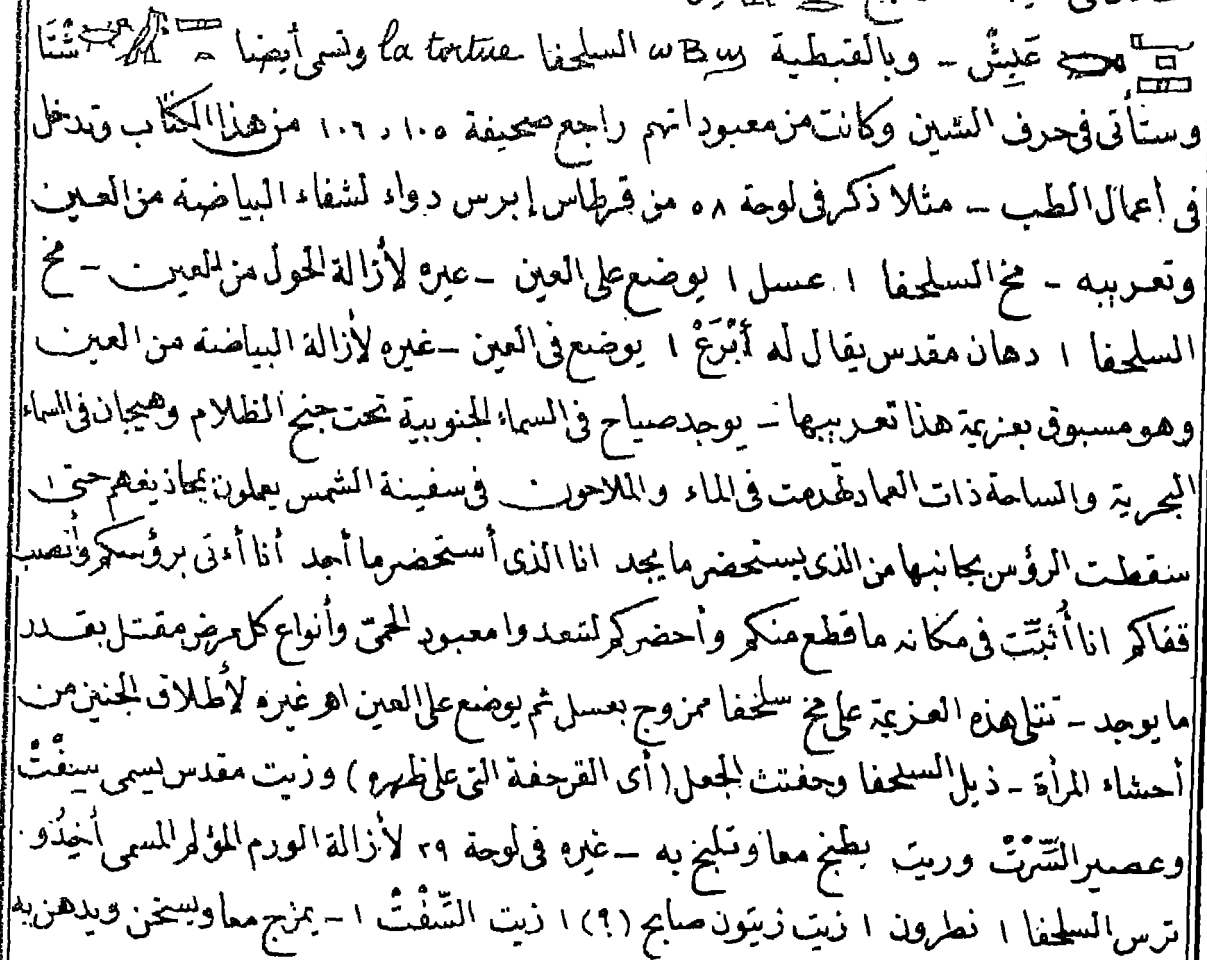 عَبِشْ - وبالقبطية ωBω السلحفا la tortue وتسمى أيضا شَتَا
وستأتى فى حرف الشين وكانت من معبوداتهم راجع صحيفة ١٠٥ و ١٠٦ من هذا الكتاب وتدخل
فى أعمال الطب - مثلا ذكر فى لوحة ٥٨ من قرطاس إبرس دواء لشفاء البياضة من العين
وتعريبه - مخ السلحفا ١ عسل ١ يوضع على العين - غيره لأزالة الحول من العين - مخ
السلحفا ١ دهان مقدس يقال له أَبْرَعْ ١ يوضع فى العين - غيره لأزالة البياضة من العين
وهو مسبوق بعزيمة هذا تعريبها - يوجد صياح فى السماء الجنوبية تحت جنح الظلام وهيجان فى السماء
البحرية والساحة ذات العماد تهدمت فى الماء والملاحون فى سفينة الشمس يعملون بمجاذيفهم حتى ١
سقطت الرؤس بجانبها من الذى يستحضر ما يجد انا الذى أستحضر ما أجد أنا أءتى برؤسكم وأنصب
قفاكم انا أُثبِّت فى مكانه ما قطع منكم وأحضركم لتبعدوا معبود الحمىّ وأنواع كل مرض مقتل بقدر
ما يوجد - تتلى هذه العزيمة على مخ سلحفا ممزوج بعسل ثم يوضع على العين اهـ غيره لأطلاق الجنين من
أحشاء المرأة - ذبل السلحفا وحفتث الجعل (أى القرحفة التى على ظهره) وزيت مقدس يسمى سِفْتْ
وعصير السَّرْتْ وزيت يطبخ معا وتلبخ به - غيره فى لوحة ٢٩ لأزالة الورم المؤلم المسمى أخِدُو
ترس السلحفا ١ نطرون ١ زيت زيتون صابح (؟) ١ زيت السِّفْتْ ١ - يمزج معا ويسخن ويدهن به